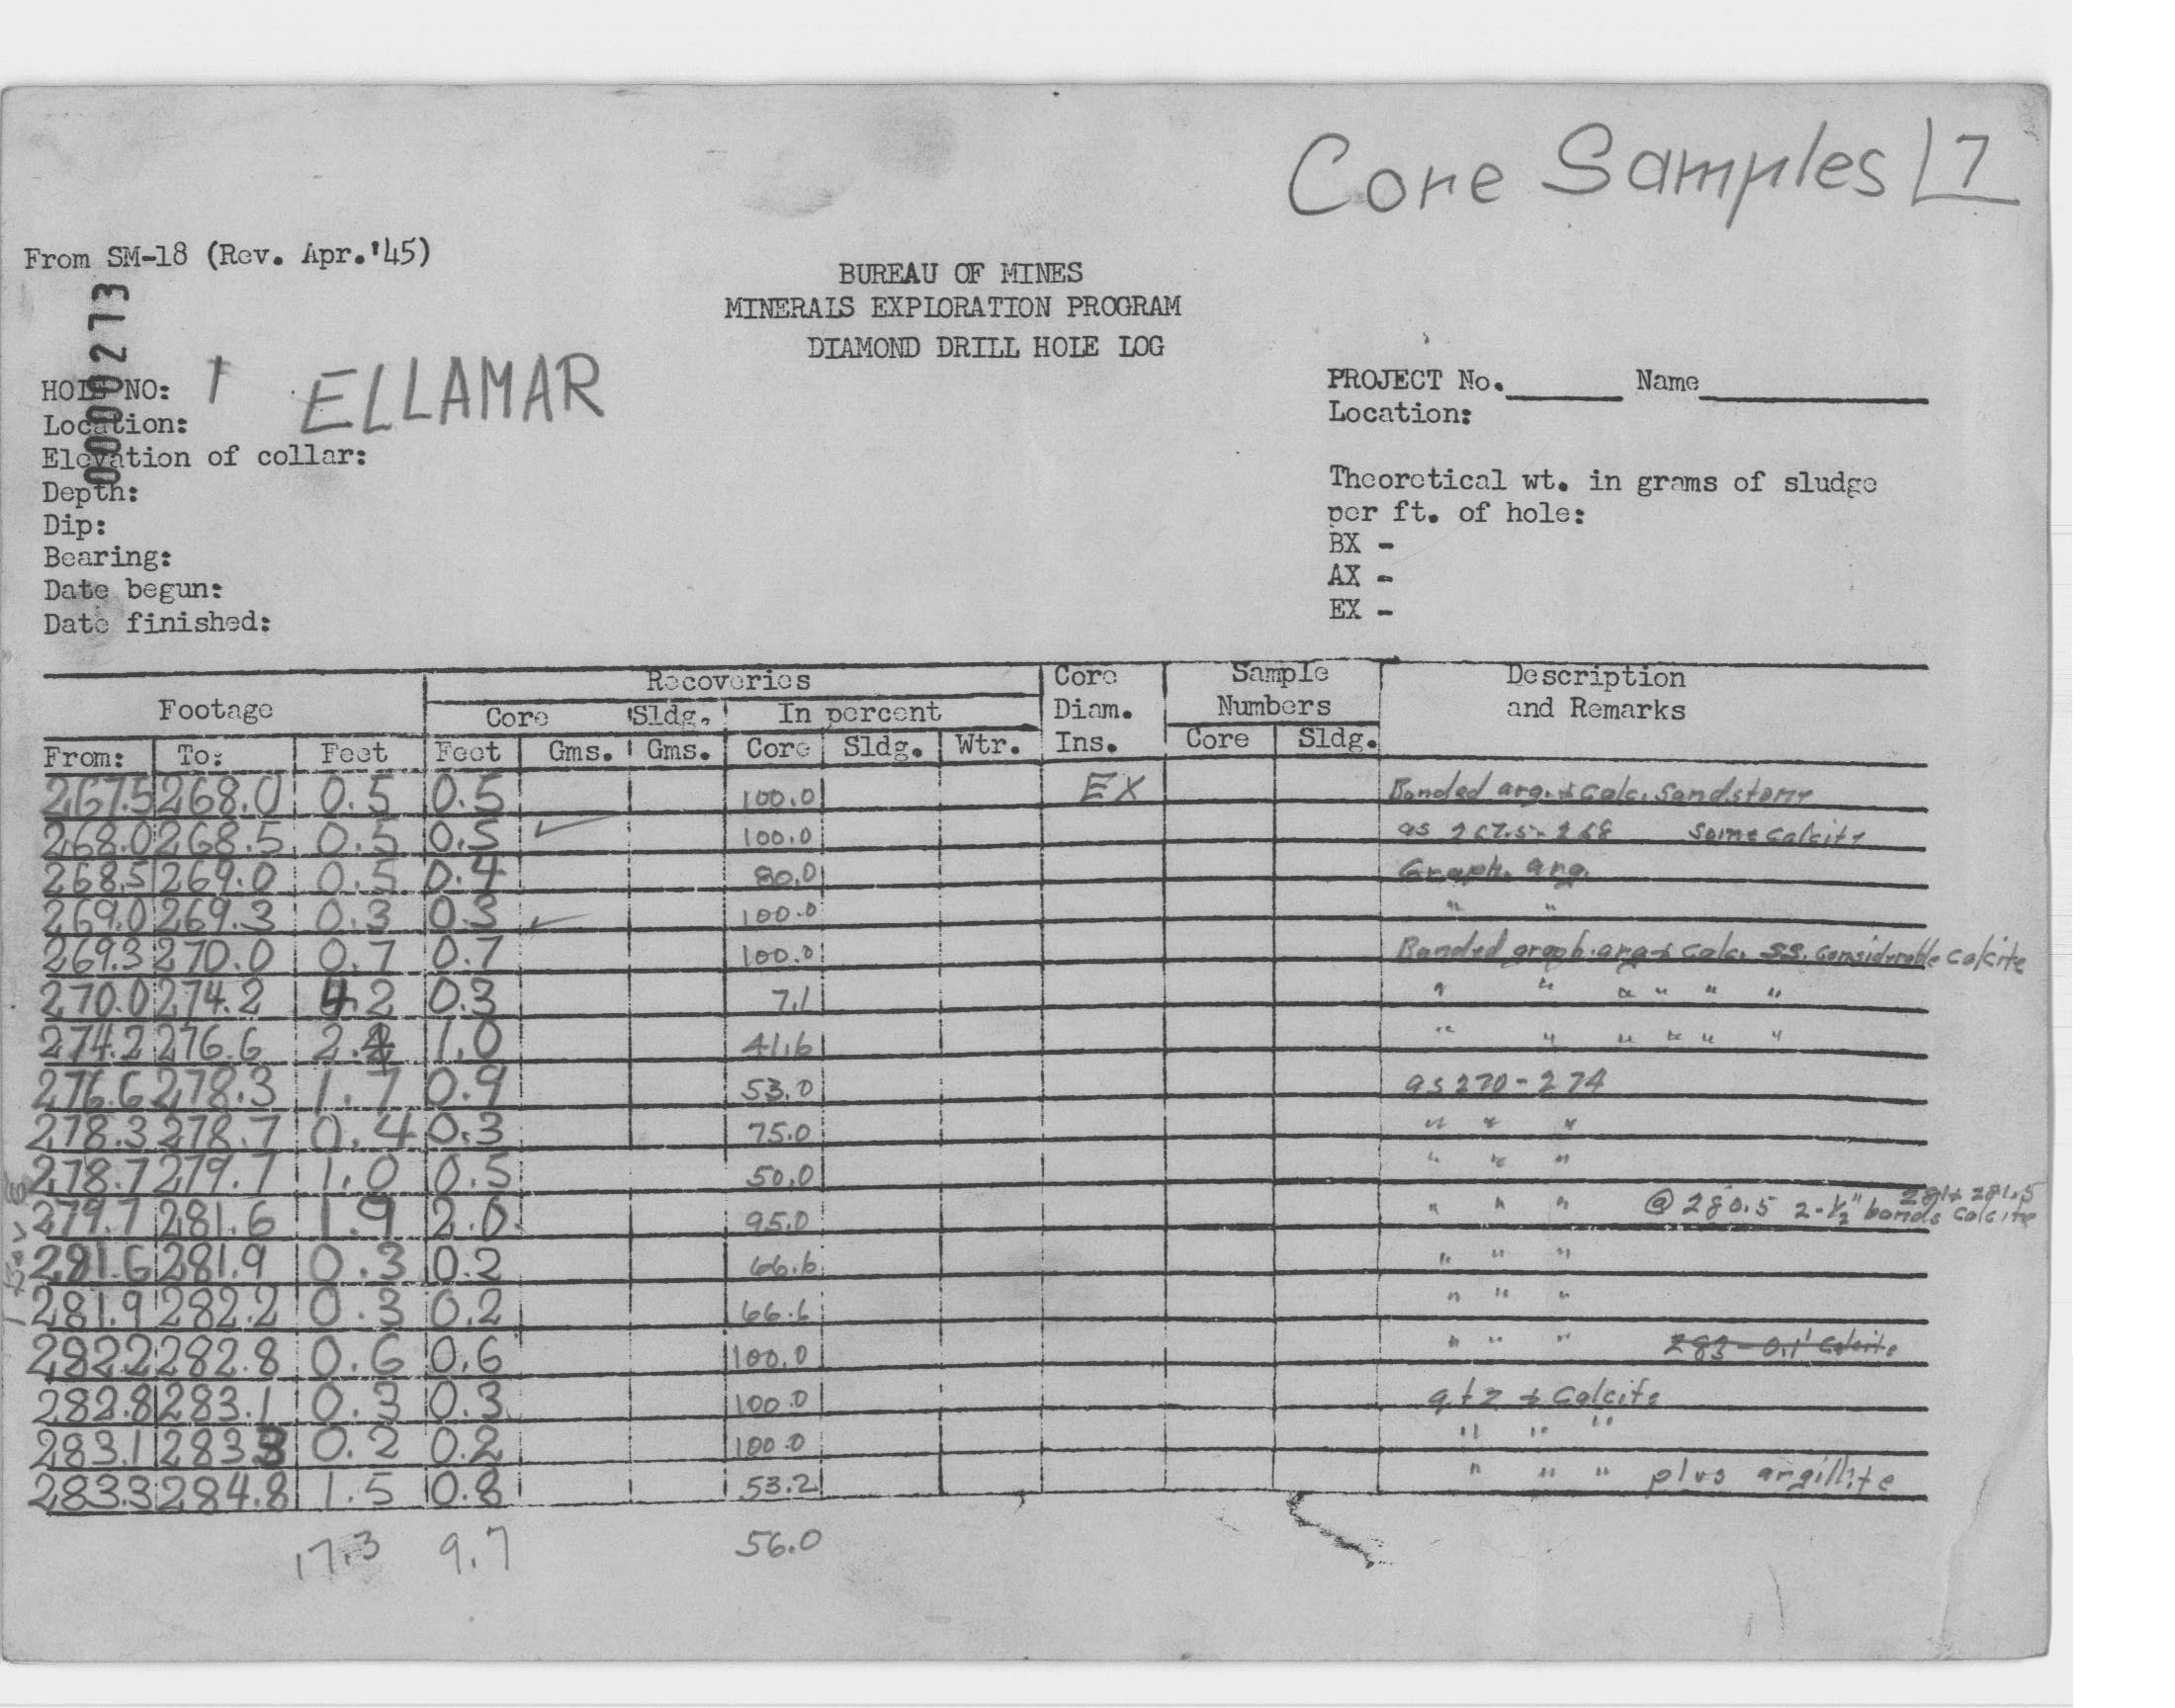 Core Samples 7
From SM-18 (Rev. Apr.'45)
0000273
BUREAU OF MINES
MINERALS EXPLORATION PROGRAM
DIAMOND DRILL HOLE LOG
HOLE NO: 1 ELLAMAR
Location:
Elevation of collar:
Depth:
Dip:
Bearing:
Date begun:
Date finished:
PROJECT No.______ Name____________
Location:
Theoretical wt. in grams of sludge
per ft. of hole:
BX -
AX -
EX -
Footage Recoveries Core Diam. Ins. Sample Numbers Description and Remarks
Core Sldg. In percent
From: To: Feet Feet Gms. Gms. Core Sldg. Wtr. Core Sldg.
267.5 268.0 0.5 0.5 100.0 EX Banded arg. & calc. sandstone
268.0 268.5 0.5 0.5 ✓ 100.0 as 267.5-268 some calcite
268.5 269.0 0.5 0.4 80.0 Graph. arg.
269.0 269.3 0.3 0.3 ✓ 100.0 " "
269.3 270.0 0.7 0.7 100.0 Banded graph. arg & calc. ss. considerable calcite
270.0 274.2 4.2 0.3 7.1 " " " " " "
274.2 276.6 2.4 1.0 41.6 " " " " " "
276.6 278.3 1.7 0.9 53.0 as 270-274
278.3 278.7 0.4 0.3 75.0 " " "
278.7 279.7 1.0 0.5 50.0 " " "
279.7 281.6 1.9 2.0 95.0 " " " @ 280.5 281 & 281.5 2-½" bands calcite
281.6 281.9 0.3 0.2 66.6 " " "
281.9 282.2 0.3 0.2 66.6 " " "
282.2 282.8 0.6 0.6 100.0 " " " 283-0.1' calcite
282.8 283.1 0.3 0.3 100.0 qtz & calcite
283.1 283.3 0.2 0.2 100.0 " " "
283.3 284.8 1.5 0.8 53.2 " " " plus argillite
17.3 9.7 56.0